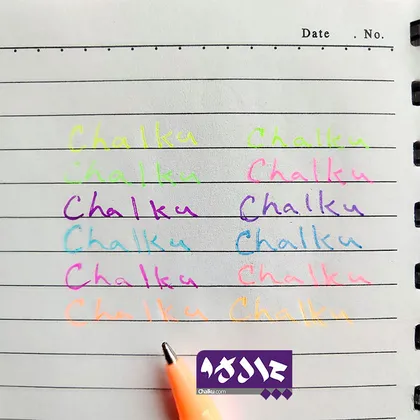 Date . No.
Chalku Chalku
Chalku Chalku
Chalku Chalku
Chalku Chalku
Chalku Chalku
Chalku Chalku
Chalku.com